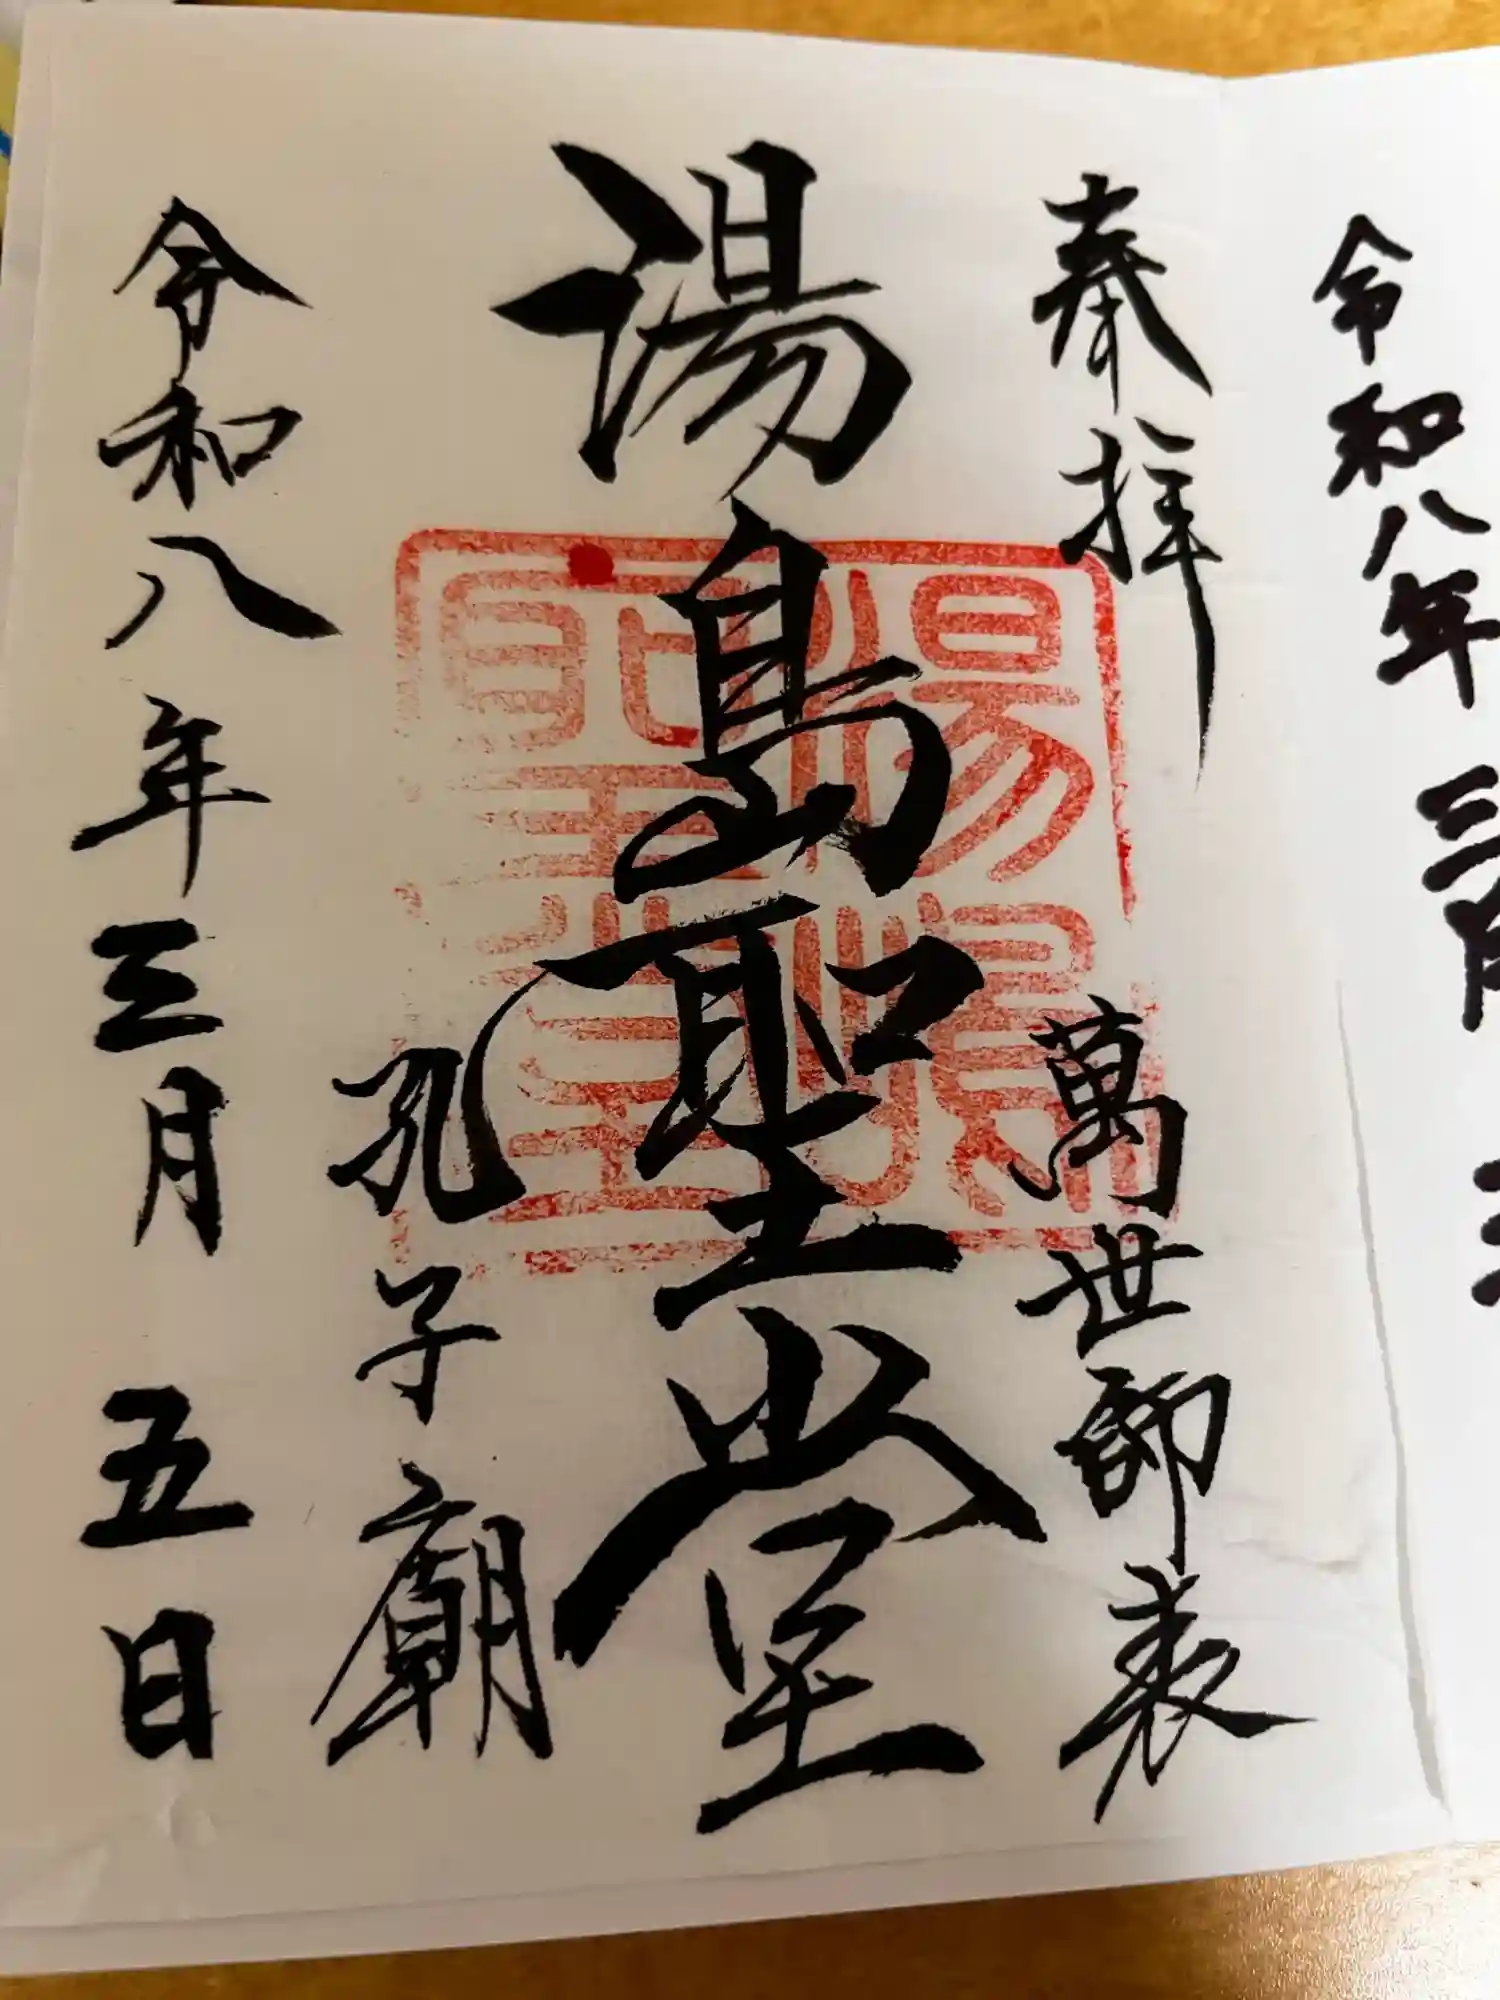 令和八年三月三
奉拝
萬世師表
湯島聖堂
湯島聖堂
孔子廟
令和八年三月五日